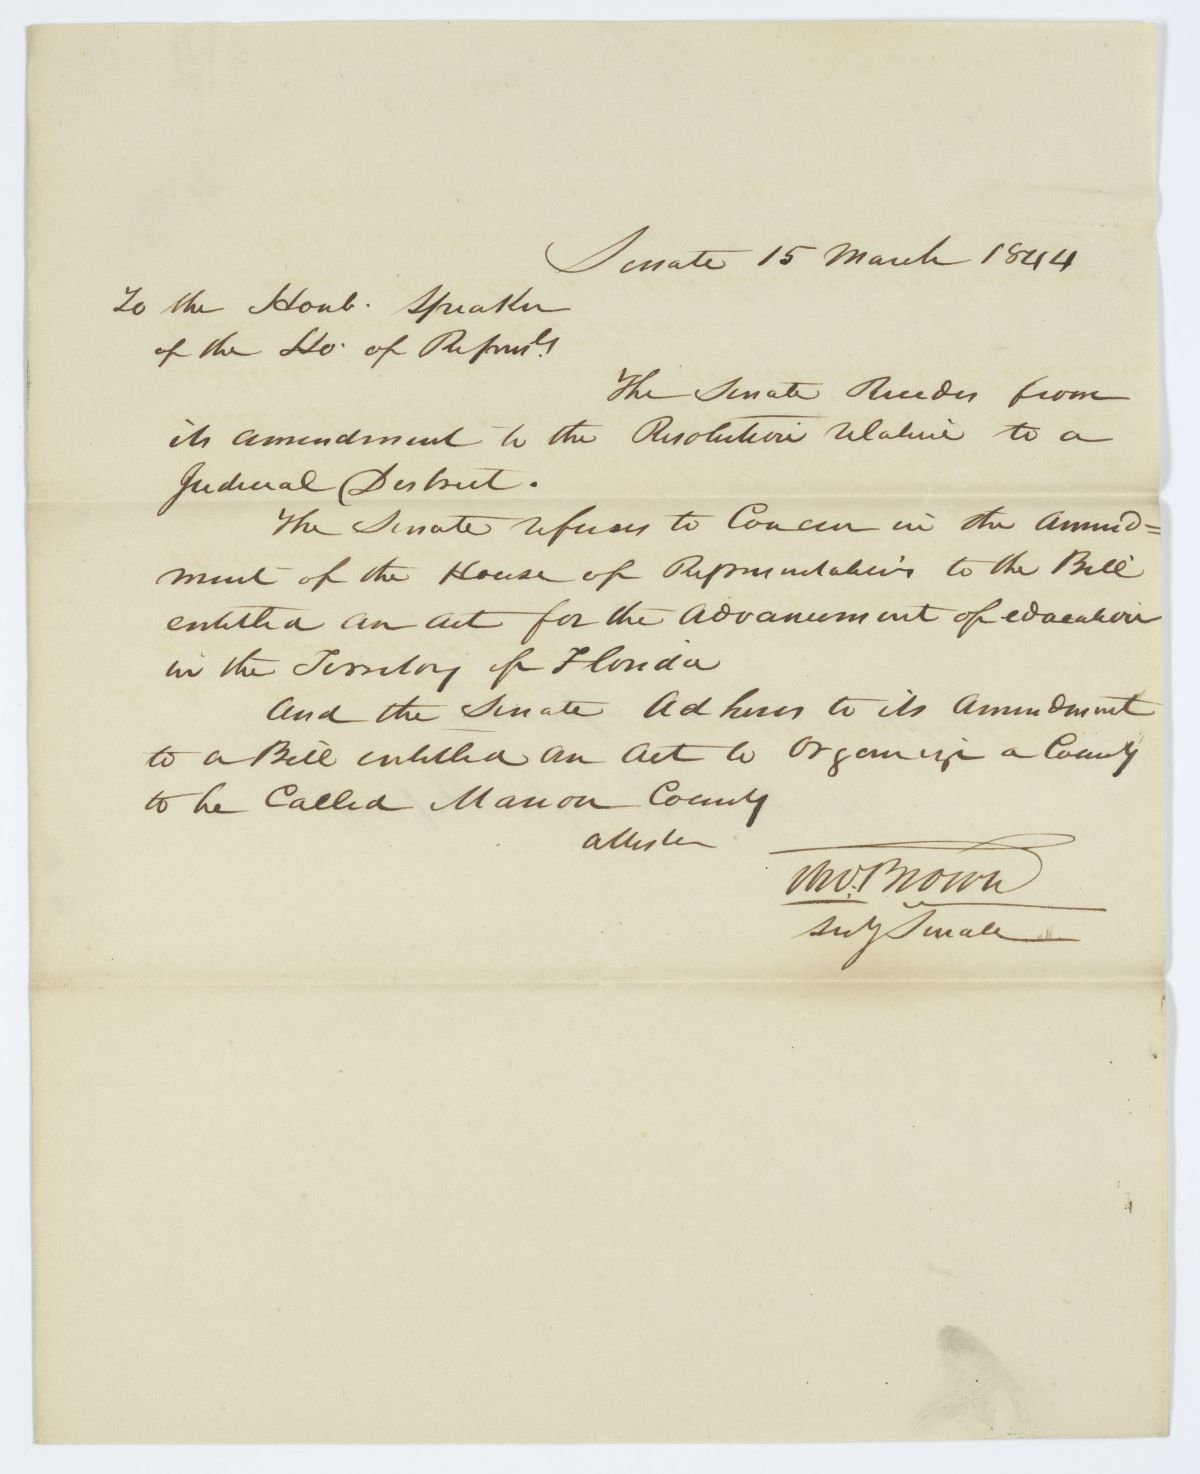 Senate 15 March 1844
To the Honb. Speaker
of the Ho. of Represts
The Senate Recedes from
its amendment to the Resolution relative to a
Judicial District.
The Senate refuses to Concur in the Amend=
ment of the House of Representatives to the Bill
entitled an act for the Advancement of education
in the Territory of Florida
And the Senate Adheres to its Amendment
to a Bill entitled an Act to Organize a County
to be Called Marion County
attest
Tho. Brown
Secy Senate